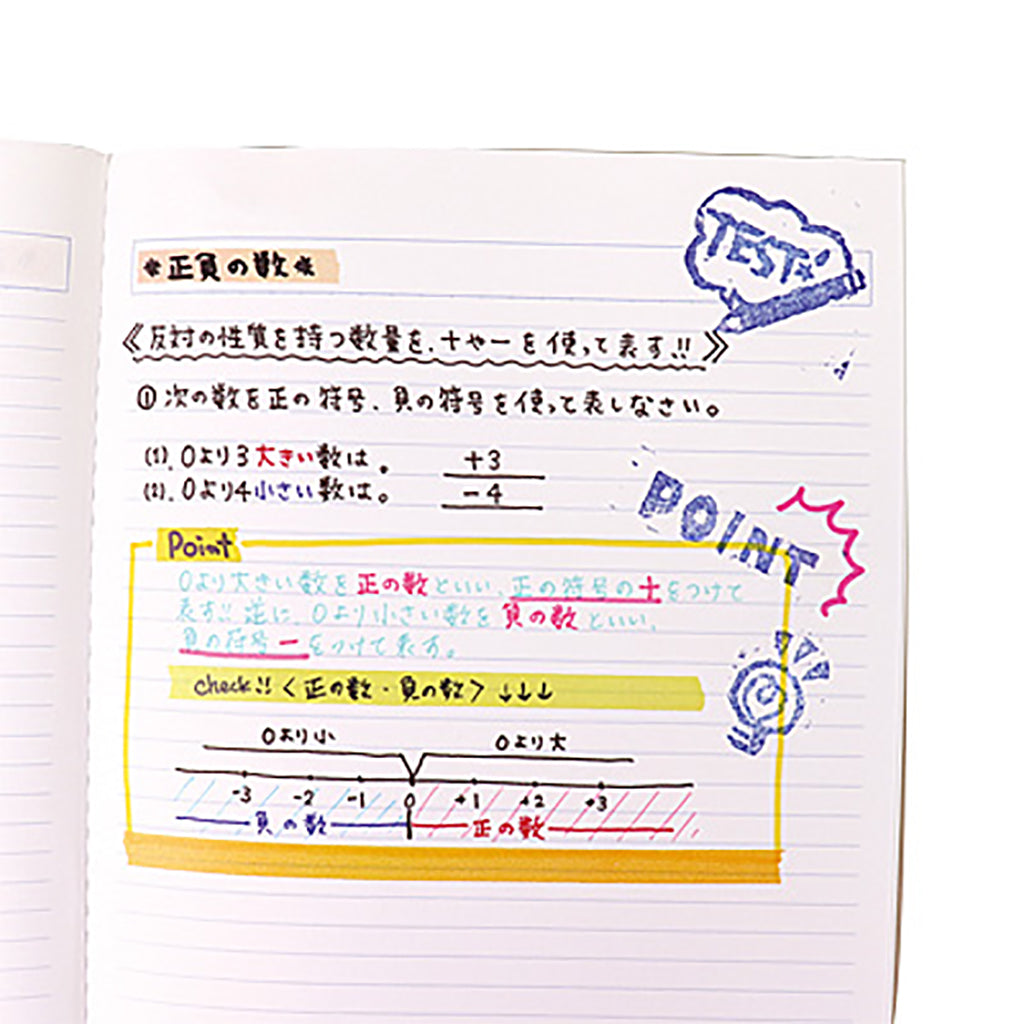 *正負の数*
TEST
《反対の性質を持つ数量を、+や−を使って表す!!》
① 次の数を正の符号、負の符号を使って表しなさい。
(1). 0より3大きい数は。 +3
(2). 0より4小さい数は。 −4
POINT
Point
0より大きい数を正の数といい、正の符号の+をつけて
表す!! 逆に、0より小さい数を負の数といい、
負の符号−をつけて表す。
check!! <正の数・負の数> ↓↓↓
0より小 0より大
-3 -2 -1 0 +1 +2 +3
負の数 正の数